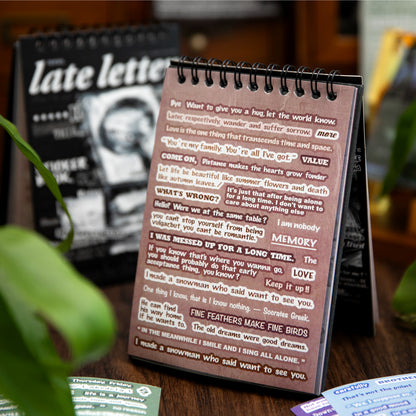 late letter
Bye Want to give you a hug, let the world know.
Later, respectively, wander and suffer sorrow. more
Love is the one thing that transcends time and space.
You're my family. You're all I've got. VALUE
COME ON, Distance makes the hearts grow fonder
Let life be beautiful like summer flowers and death
like autumn leaves
It's just that after being alone
for a long time. I don't want to
care about anything else
WHAT'S WRONG?
Hello! Were we at the same table? I am nobody
you can't stop yourself from being
vulgar but you can't be romantic. MEMORY
I WAS MESSED UP FOR A LONG TIME. The
If you know that's where you wanna go,
you should probably do that early
acceptance thing, you know? LOVE
Keep it up!!
I made a snowman who said want to see you.
One thing I know, that is I know nothing. — Socrates Greek
He can find
his way home
if he wants to.
FINE FEATHERS MAKE FINE BIRDS
The old dreams were good dreams.
"IN THE MEANWHILE I SMILE AND I SING ALL ALONE."
I made a snowman who said want to see you.
Thursday, Friday
life is a journey
Carefully